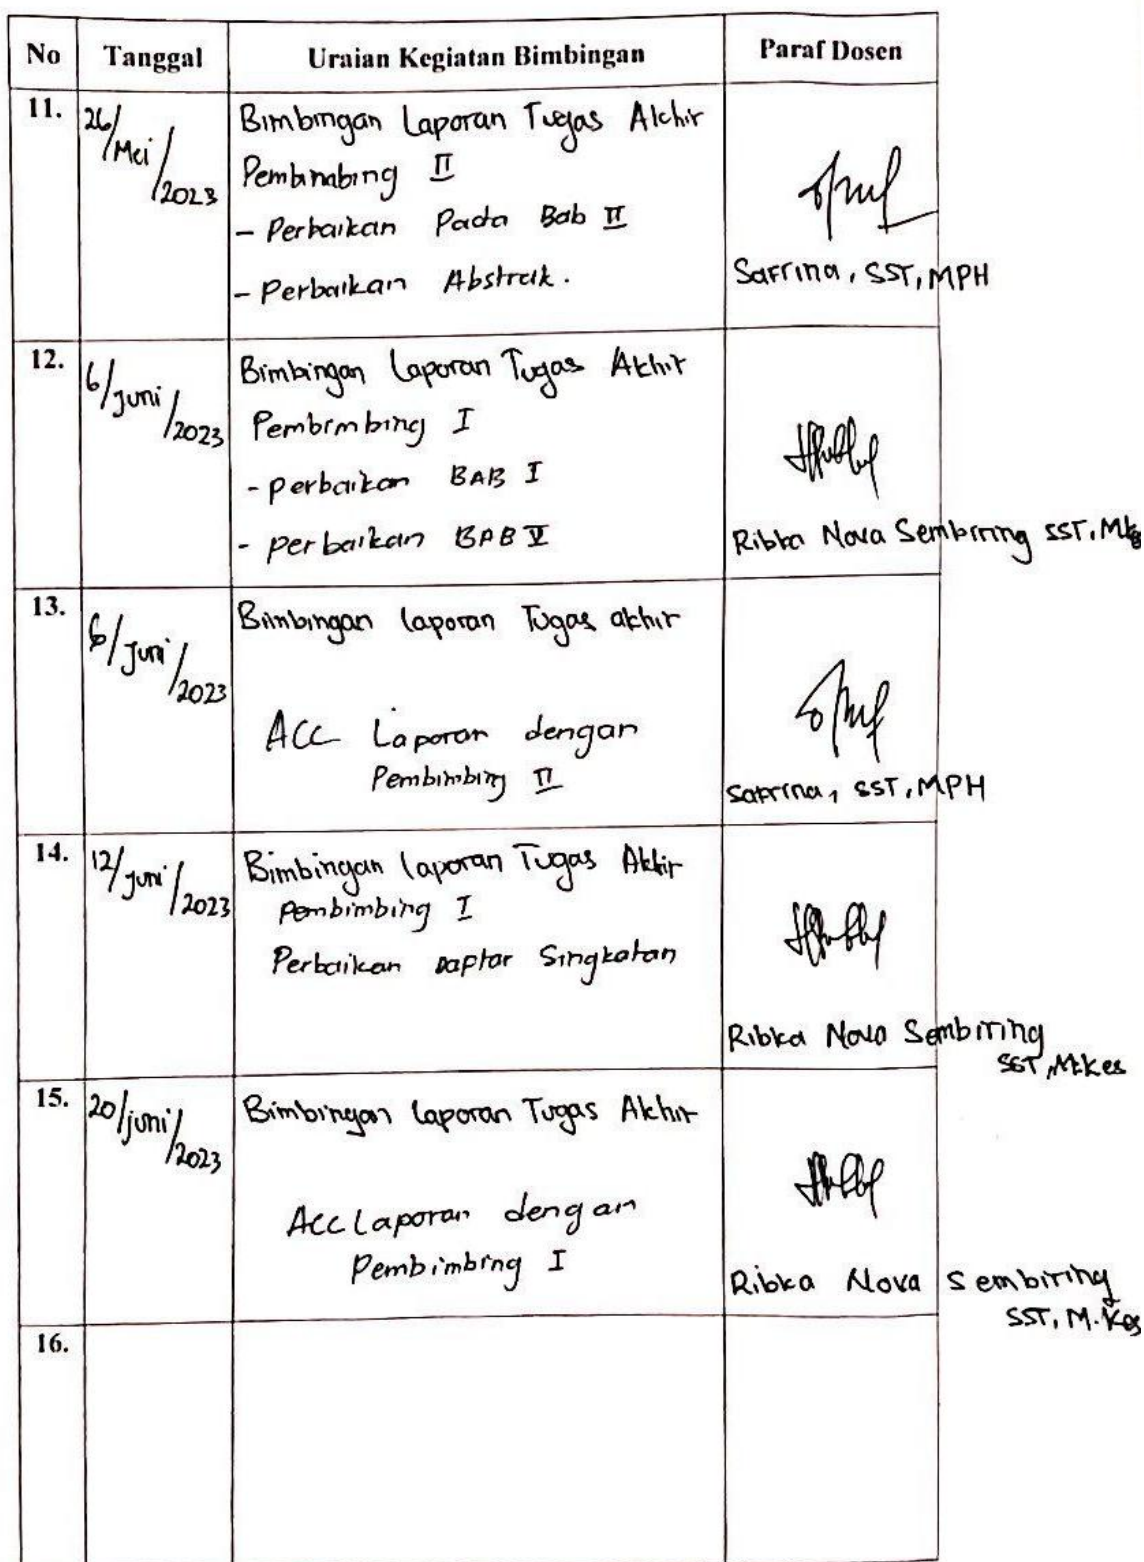 No Tanggal Uraian Kegiatan Bimbingan Paraf Dosen
11. 26/Mei/2023
Bimbingan Laporan Tugas Akhir
Pembinabing II
- Perbaikan Pada Bab II
- Perbaikan Abstrak.
Safrina, SST, MPH
12. 6/Juni/2023
Bimbingan Laporan Tugas Akhir
Pembimbing I
- perbaikan BAB I
- perbaikan BAB V
Ribka Nova Sembiring SST, M.Kes
13. 6/Juni/2023
Bimbingan laporan Tugas akhir
ACC Laporan dengan
Pembimbing II
Safrina, SST, MPH
14. 12/Juni/2023
Bimbingan laporan Tugas Akhir
Pembimbing I
Perbaikan Daptar Singkatan
Ribka Nova Sembiring
SST, M.Kes
15. 20/juni/2023
Bimbingan Laporan Tugas Akhir
ACC Laporan dengan
Pembimbing I
Ribka Nova Sembiring
SST, M.Kes
16.